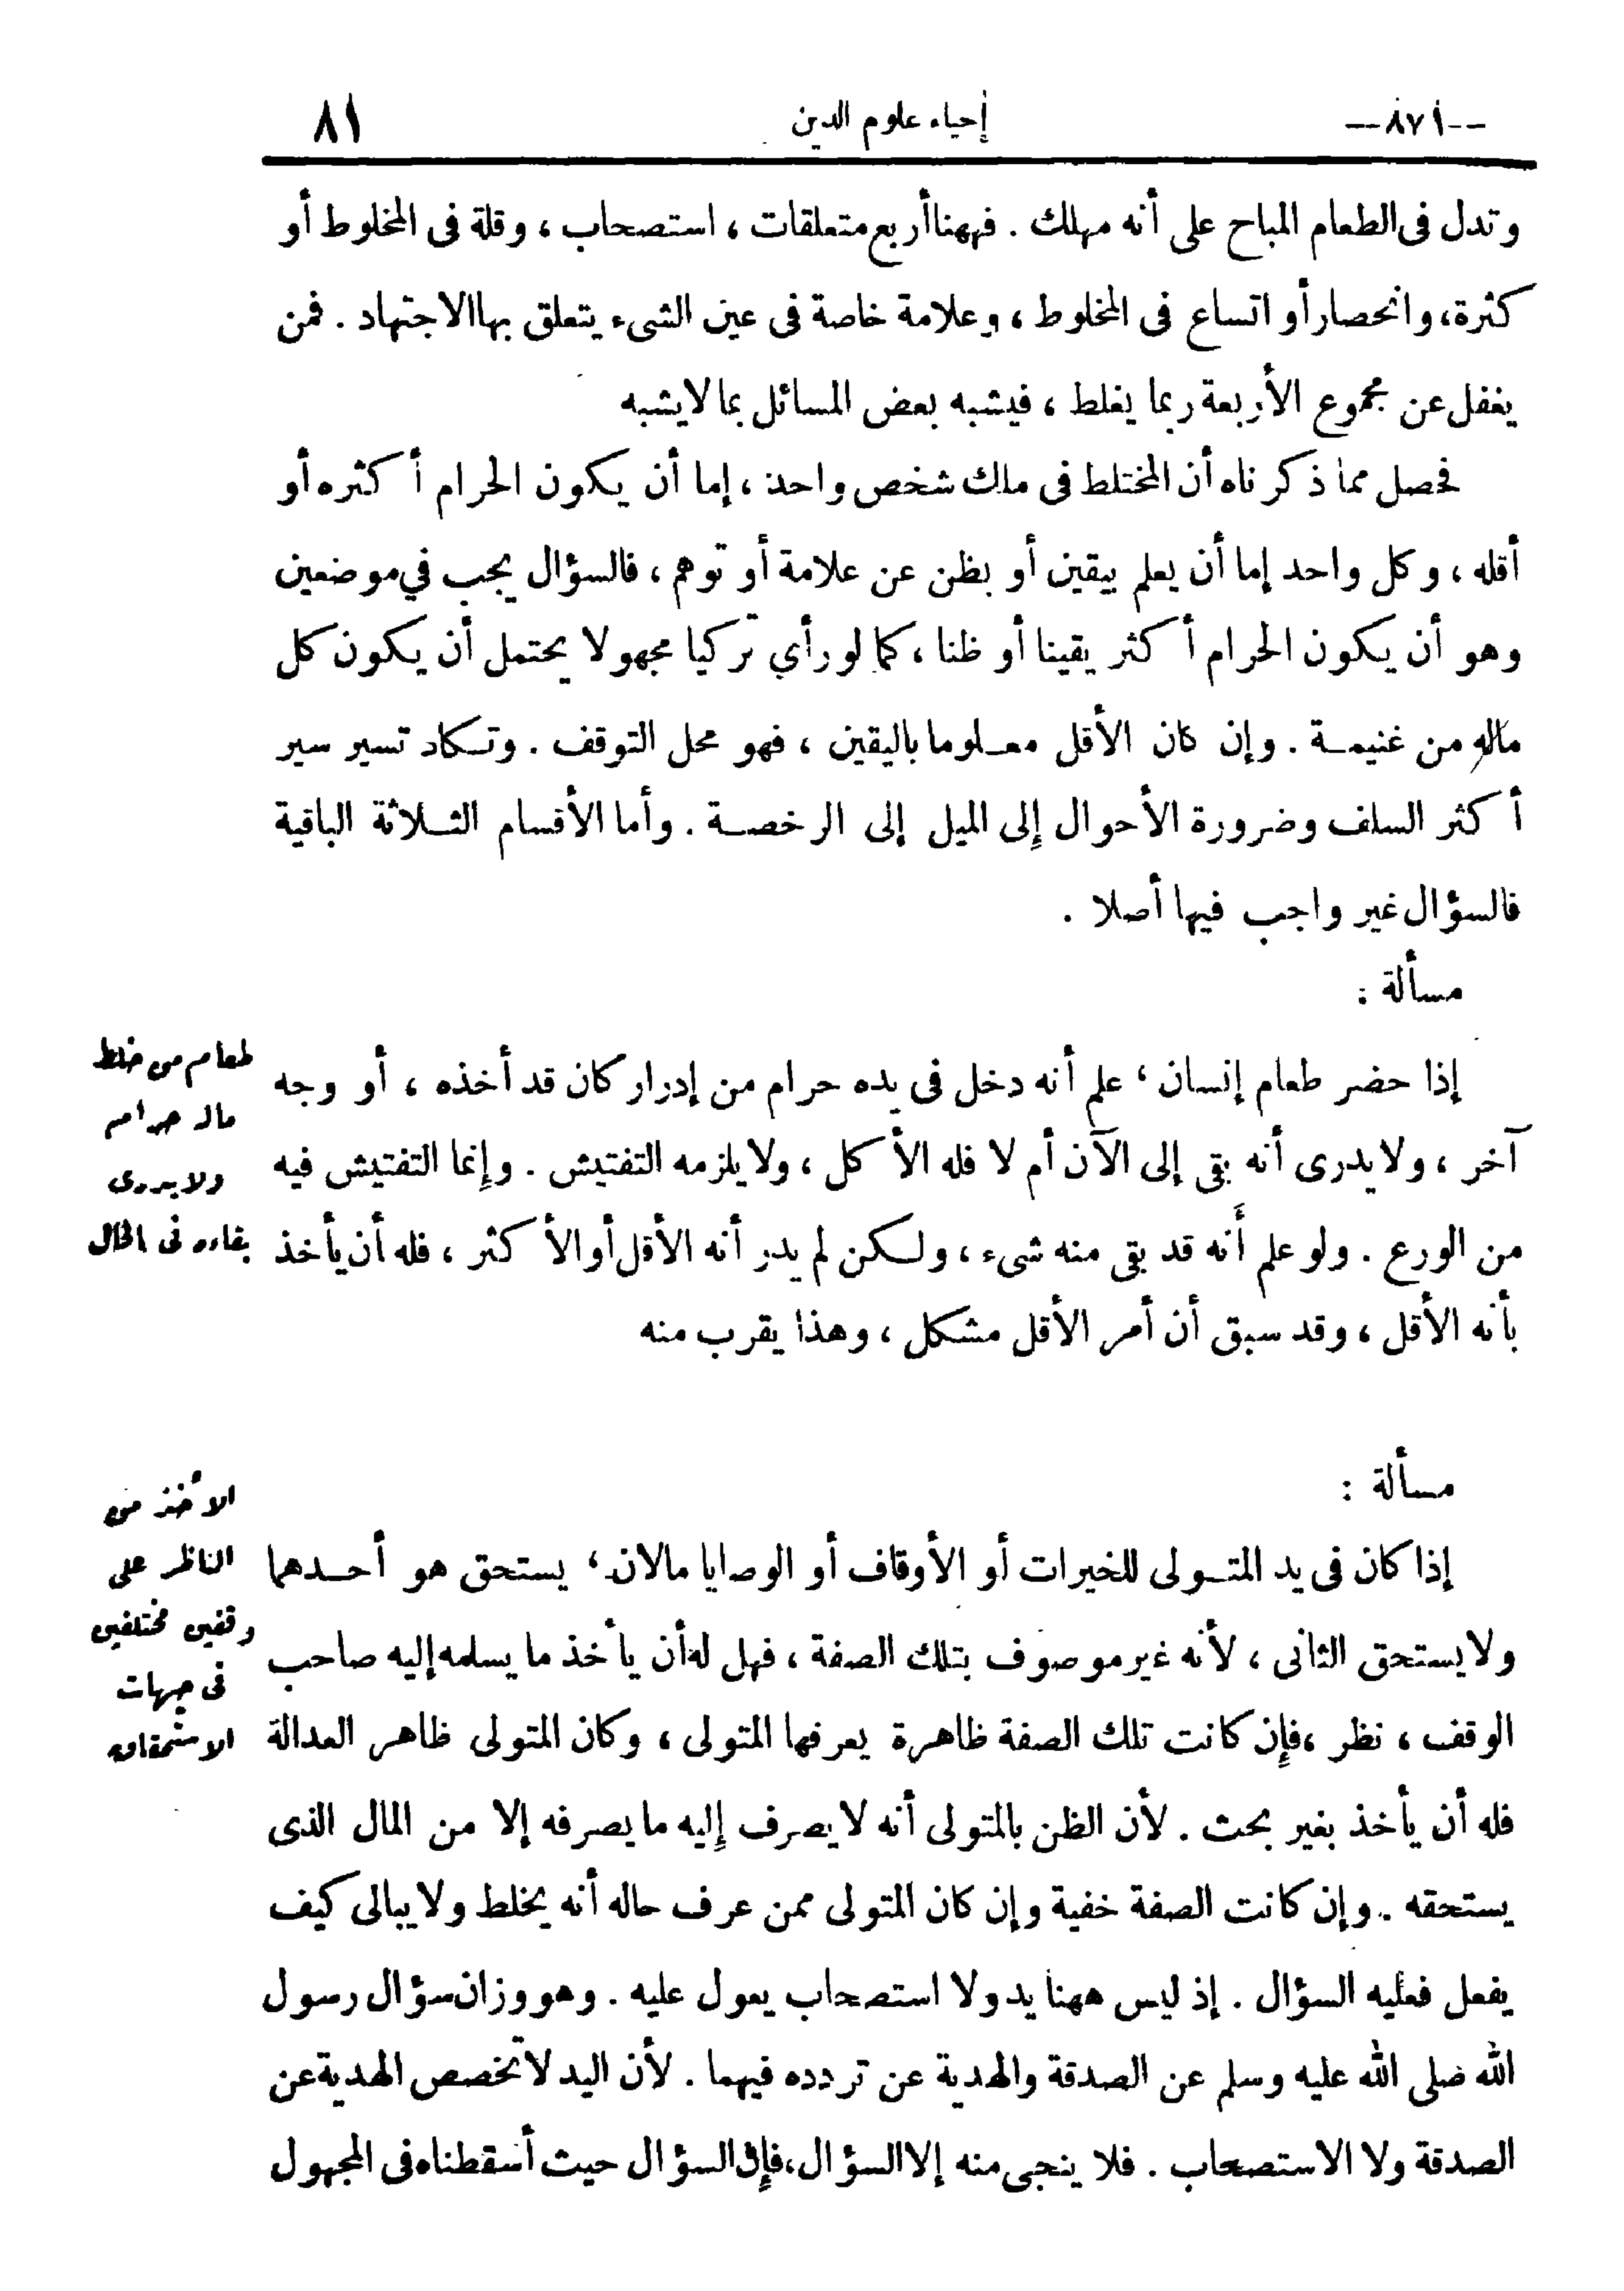 --٨٧١--
إحياء علوم الدين
٨١
وتدل فى الطعام المباح على أنه مهلك . فههنا أربع متعلقات ، استصحاب ، وقلة فى المخلوط أو
كثرة، وانحصار أو اتساع فى المخلوط ، وعلامة خاصة فى عين الشىء يتعلق بها الاجتهاد . فمن
يغفل عن مجموع الأربعة ربما يغلط ، فيشبه بعض المسائل بما لا يشبه
فحصل مما ذكرناه أن المختلط فى ملك شخص واحد ، إما أن يكون الحرام أكثره أو
أقله ، وكل واحد إما أن يعلم بيقين أو بظن عن علامة أو توهم ، فالسؤال يجب في موضعين
وهو أن يكون الحرام أكثر يقينا أو ظنا ، كما لو رأي تركيا مجهولا يحتمل أن يكون كل
ماله من غنيمة . وإن كان الأقل معلوما باليقين ، فهو محل التوقف . وتكاد تسير سير
أكثر السلف وضرورة الأحوال إلى الميل إلى الرخصة . وأما الأقسام الثلاثة الباقية
فالسؤال غير واجب فيها أصلا .
مسألة :
إذا حضر طعام إنسان ، علم أنه دخل فى يده حرام من إدرار كان قد أخذه ، أو وجه
آخر ، ولا يدرى أنه بقى إلى الآن أم لا فله الأكل ، ولا يلزمه التفتيش . وإنما التفتيش فيه
من الورع . ولو علم أنه قد بقى منه شىء ، ولكن لم يدر أنه الأقل أو الأكثر ، فله أن يأخذ
بأنه الأقل ، وقد سبق أن أمر الأقل مشكل ، وهذا يقرب منه
طعام من خلط
ماله حرام
ولا يدرى
بقاءه فى الحال
مسألة :
إذا كان فى يد المتولى للخيرات أو الأوقاف أو الوصايا مالان ، يستحق هو أحدهما
ولا يستحق الثانى ، لأنه غير موصوف بتلك الصفة ، فهل له أن يأخذ ما يسلمه إليه صاحب
الوقف ، نظر ، فإن كانت تلك الصفة ظاهرة يعرفها المتولى ، وكان المتولى ظاهر العدالة
فله أن يأخذ بغير بحث . لأن الظن بالمتولى أنه لا يصرف إليه ما يصرفه إلا من المال الذى
يستحقه . وإن كانت الصفة خفية وإن كان المتولى ممن عرف حاله أنه يخلط ولا يبالى كيف
يفعل فعليه السؤال . إذ ليس ههنا يد ولا استصحاب يعول عليه . وهو وزان سؤال رسول
الله صلى الله عليه وسلم عن الصدقة والهدية عن تردده فيهما . لأن اليد لا تخصص الهدية عن
الصدقة ولا الاستصحاب . فلا ينجى منه إلا السؤال، فإن السؤال حيث أسقطناه فى المجهول
الأخذ من
الناظر على
وقفين مختلفين
فى جهات
الاستحقاق